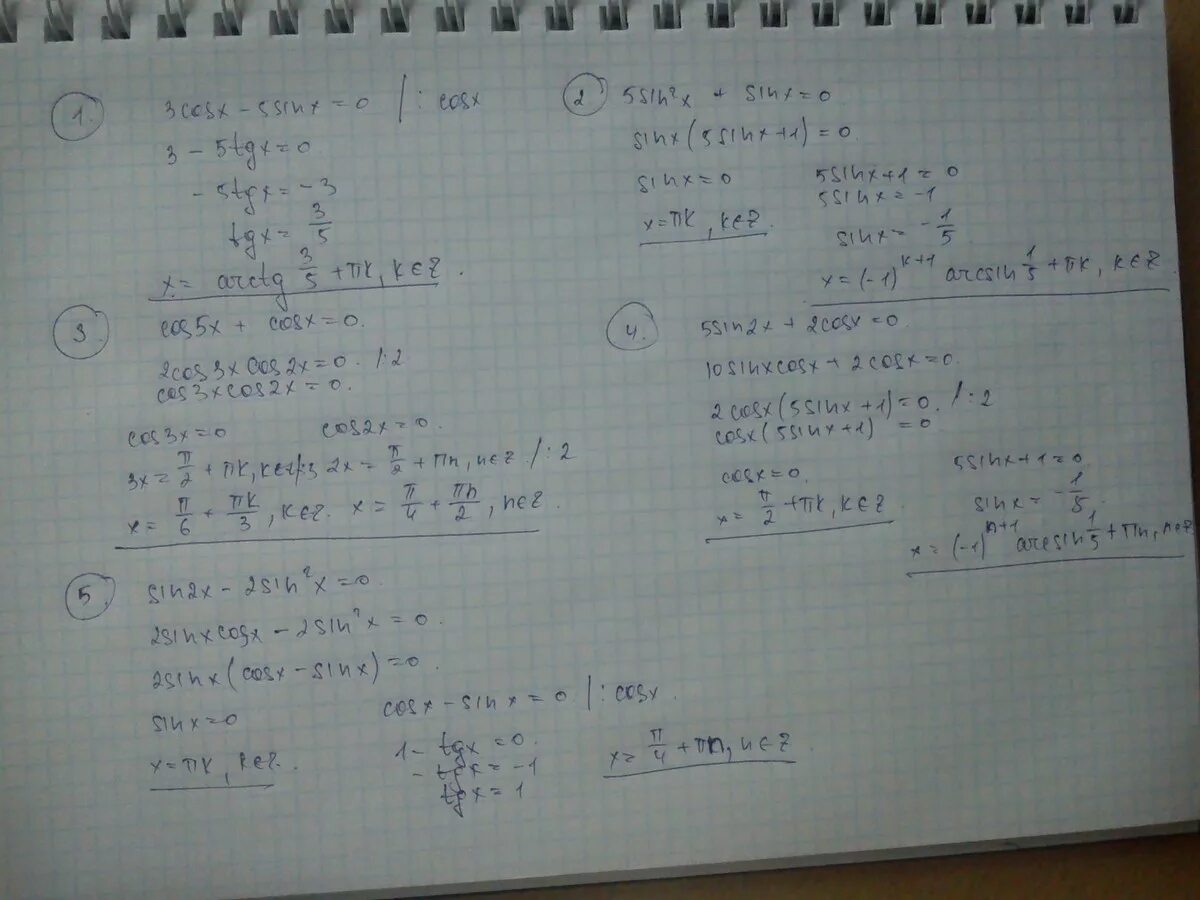 1.
3cosx - 5sinx = 0 | : cosx
3 - 5tgx = 0
- 5tgx = - 3
tgx = 3/5
x = arctg 3/5 + πk, k∈Z.
2
5sin²x + sinx = 0
sinx(5sinx+1) = 0
sinx = 0
x = πk, k∈Z.
5sinx+1 = 0
5sinx = -1
sinx = -1/5
x = (-1)^k+1 arcsin 1/5 + πk, k∈Z
3
cos5x + cosx = 0.
2cos3x cos2x = 0. /:2
cos3x cos2x = 0.
cos3x = 0 cos2x = 0.
3x = π/2 + πk, k∈Z/:3 2x = π/2 + πn, n∈Z /:2
x = π/6 + πk/3, k∈Z. x = π/4 + πn/2, n∈Z.
4.
5sin2x + 2cosx = 0.
10sinxcosx + 2cosx = 0.
2cosx(5sinx+1) = 0. /:2
cosx(5sinx+1) = 0
cosx = 0.
x = π/2 + πk, k∈Z
5sinx+1 = 0
sinx = -1/5.
x = (-1)^n+1 arcsin 1/5 + πn, n∈Z
5.
sin2x - 2sin²x = 0.
2sinxcosx - 2sin²x = 0.
2sinx(cosx - sinx) = 0.
sinx = 0
x = πk, k∈Z.
cosx - sinx = 0 | : cosx.
1 - tgx = 0.
- tgx = -1
tgx = 1
x = π/4 + πn, n∈Z